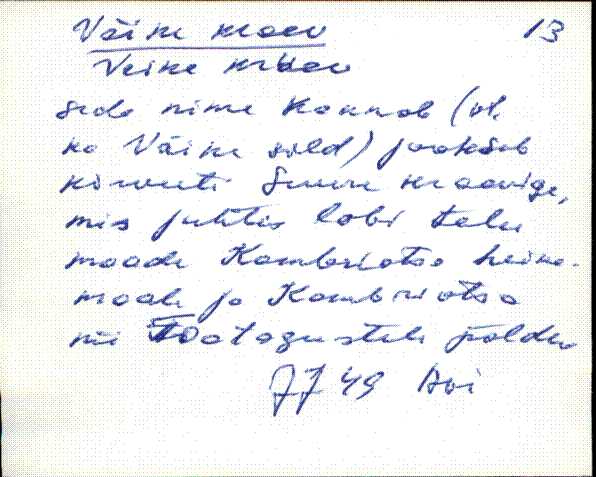 Väike kraav 13
Veike kraav
seda nime kannab (vt.
ka Väike sild) jookseb
kõrvuti Suure kraaviga,
mis juhtis läbi talu
maade Kambriotsa heina-
maale ja Kambriotsa
nii Tootagustele põldu
JJ 49 Avi